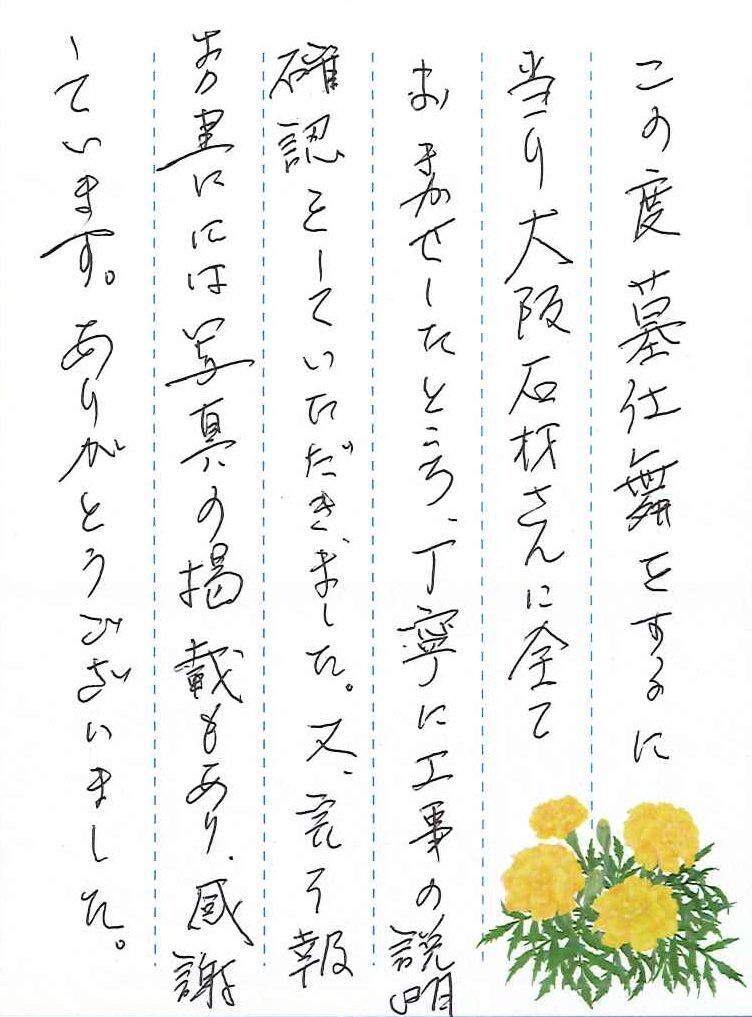 この度墓仕舞をするに
当り大阪石材さんに全て
おまかせしたところ、丁寧に工事の説明
確認をしていただきました。又、完了報
書にには写真の掲載もあり、感謝
しています。ありがとうございました。